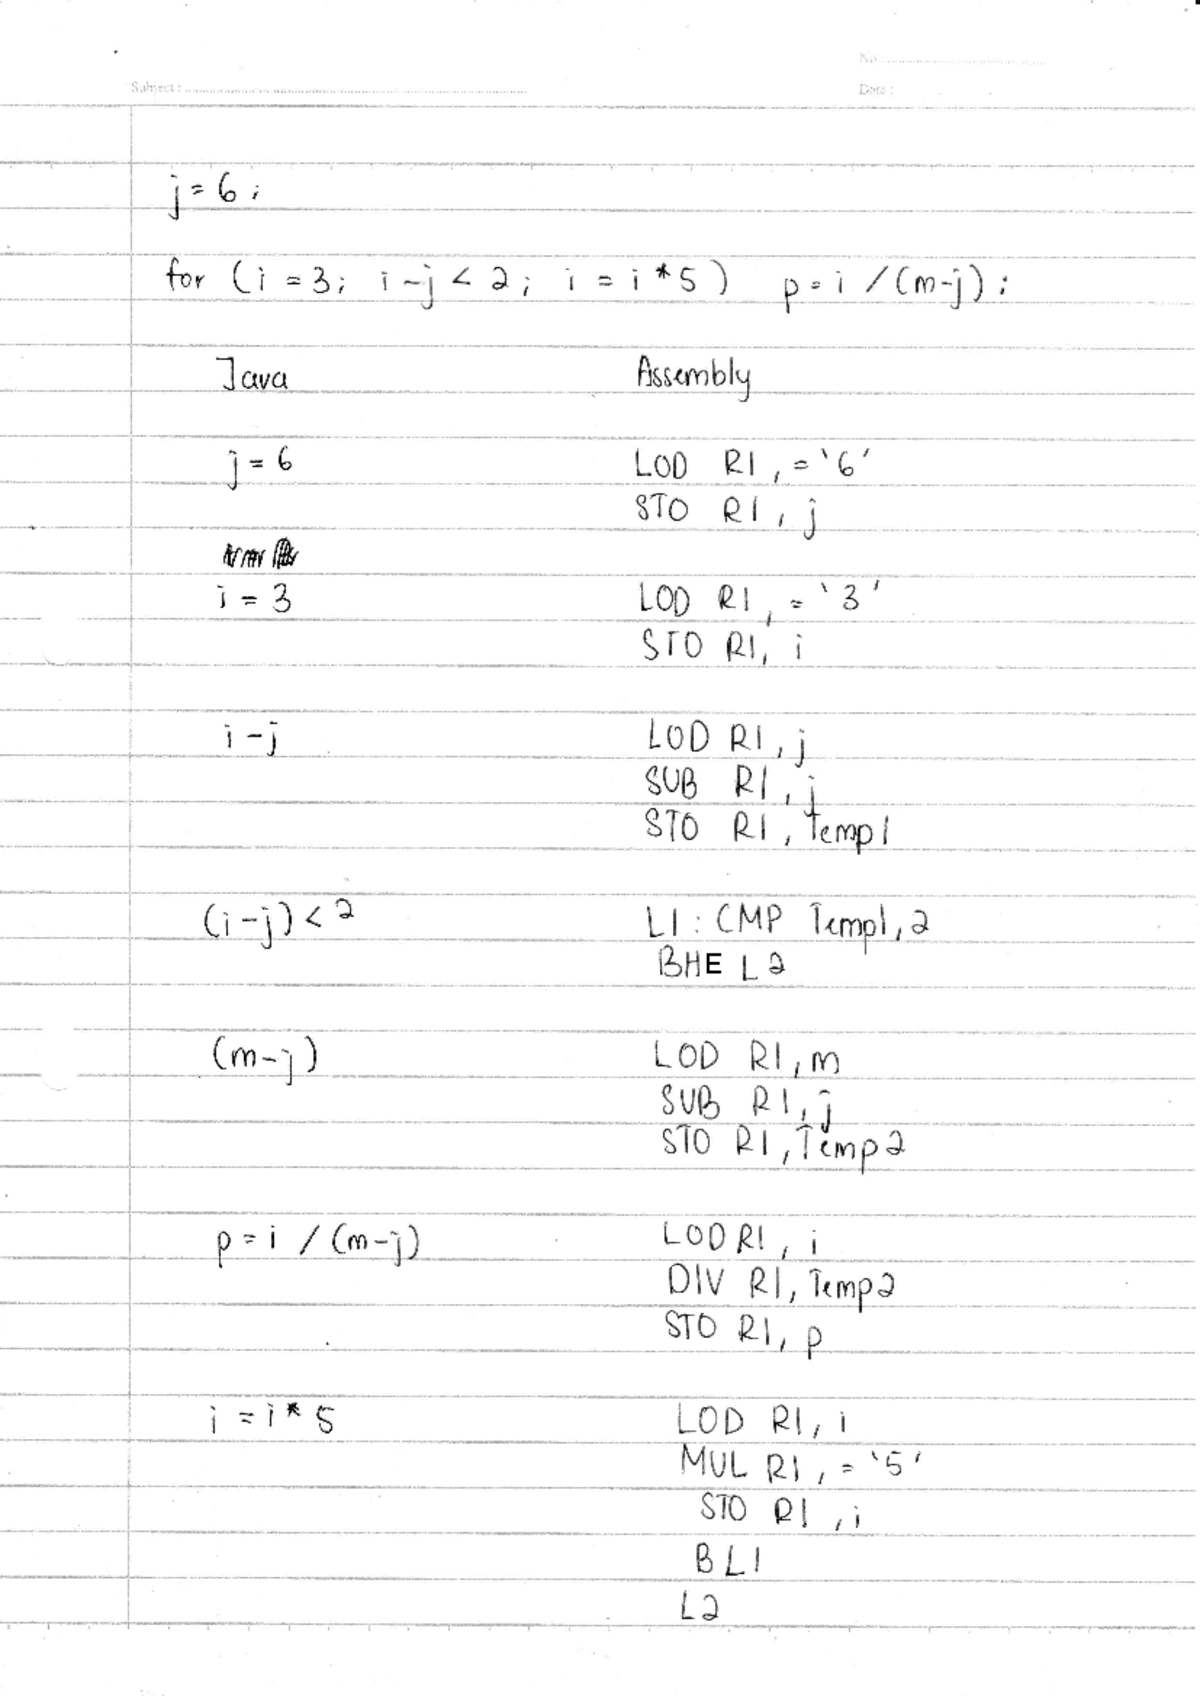 No :
Subject :
Date :
j = 6 ;
for ( i = 3 ; i - j < 2 ; i = i * 5 ) p = i / (m-j) ;
Java Assembly
j = 6 LOD R1 , = '6'
STO R1 , j
i = 3 LOD R1 , = '3'
STO R1, i
i - j LOD R1 , j
SUB R1 , j
STO R1 , Temp1
(i-j) < 2 L1 : CMP Temp1, 2
BHE L2
(m-j) LOD R1 , m
SUB R1, j
STO R1 , Temp2
p = i / (m-j) LOD R1 , i
DIV R1, Temp2
STO R1, p
i = i * 5 LOD R1, i
MUL R1 , = '5'
STO R1 , i
B L1
L2